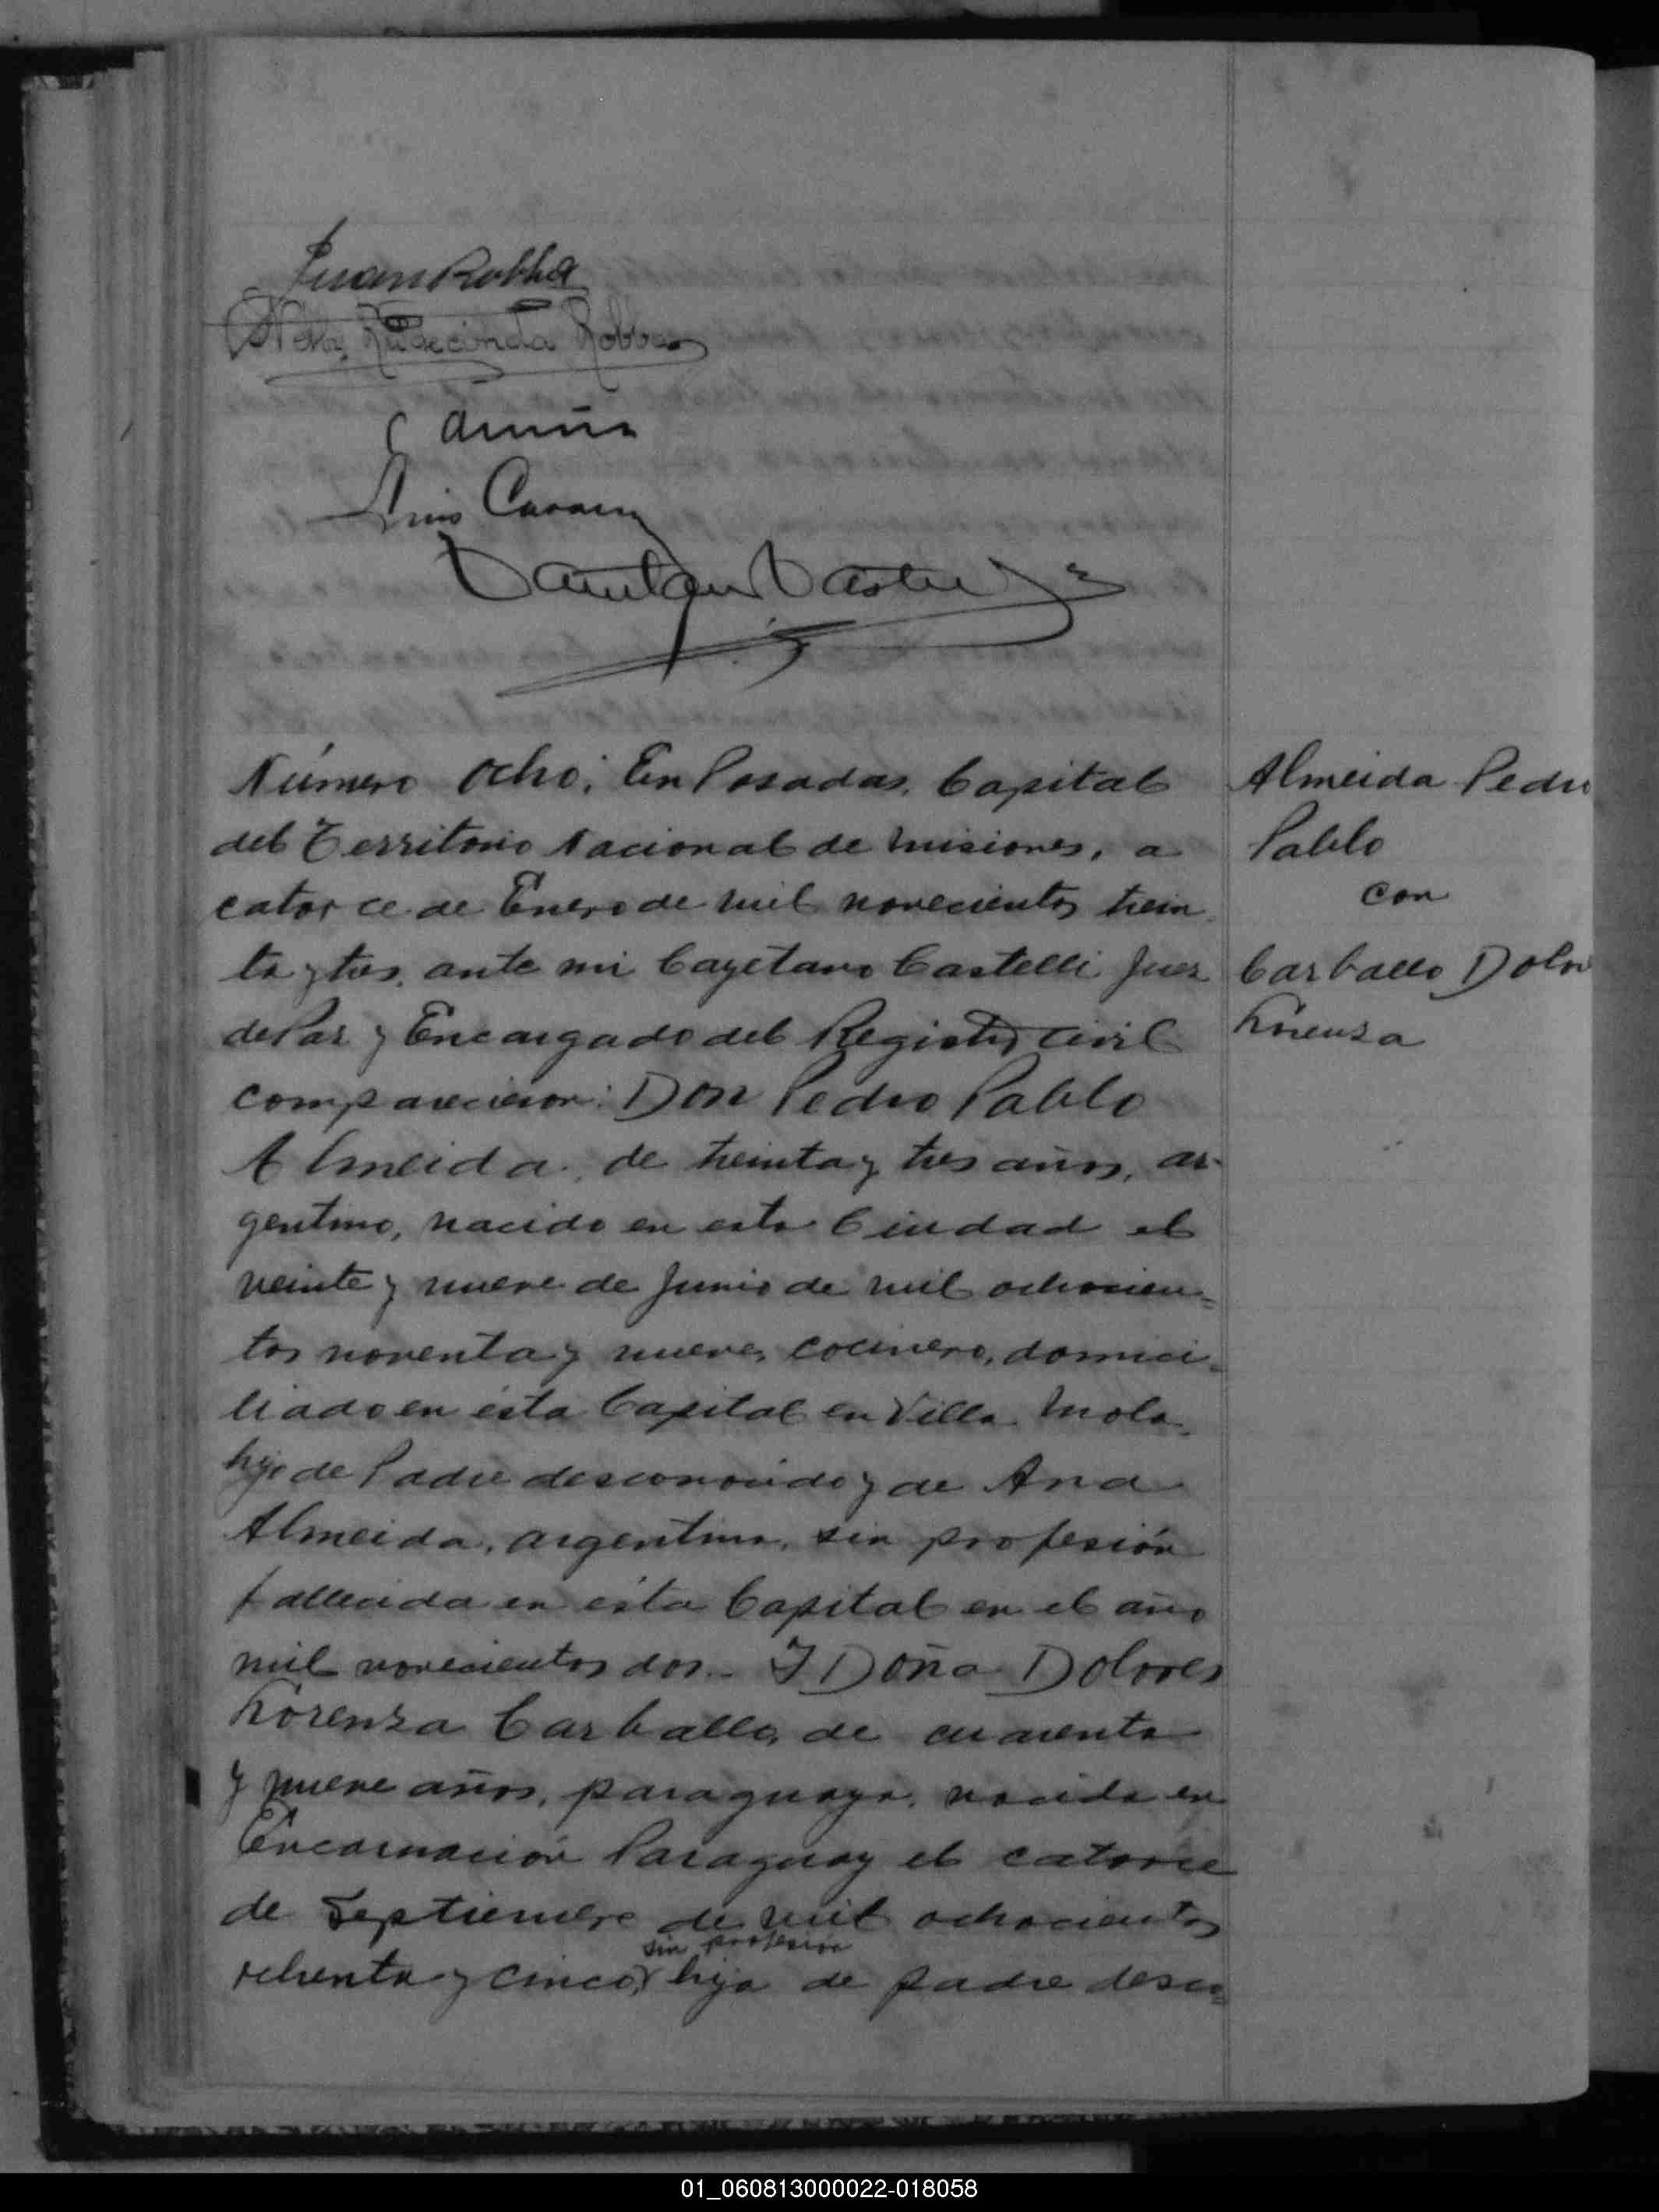 Juan Robba
Rudecinda Robba
Luis
Número ocho: En Posadas, Capital
del Territorio Nacional de Misiones, a
catorce de Enero de mil novecientos trein
ta y tres, ante mi Cayetano Castelli Juez
de Paz y Encargado del Registro Civil
comparecieron: Don Pedro Pablo
Almeida, de treinta y tres años, ar-
gentino, nacido en esta Ciudad el
veinte y nueve de Junio de mil ochocien=
tos noventa y nueve, cocinero, domici=
liado en ésta Capital en Villa Mola,
hijo de Padre desconocido y de Ana
Almeida, argentina, sin profesión
fallecida en ésta Capital en el año
mil novecientos dos.- Y Doña Dolores
Lorenza Carballo, de cuarenta
y nueve años, paraguaya, nacida en
Encarnación Paraguay el catorce
de Septiembre de mil ochocientos
sin profesión
ochenta y cinco, hija de padre desco=
Almeida Pedro
Pablo
con
Carballo Dolor
Lorenza
01_060813000022-018058